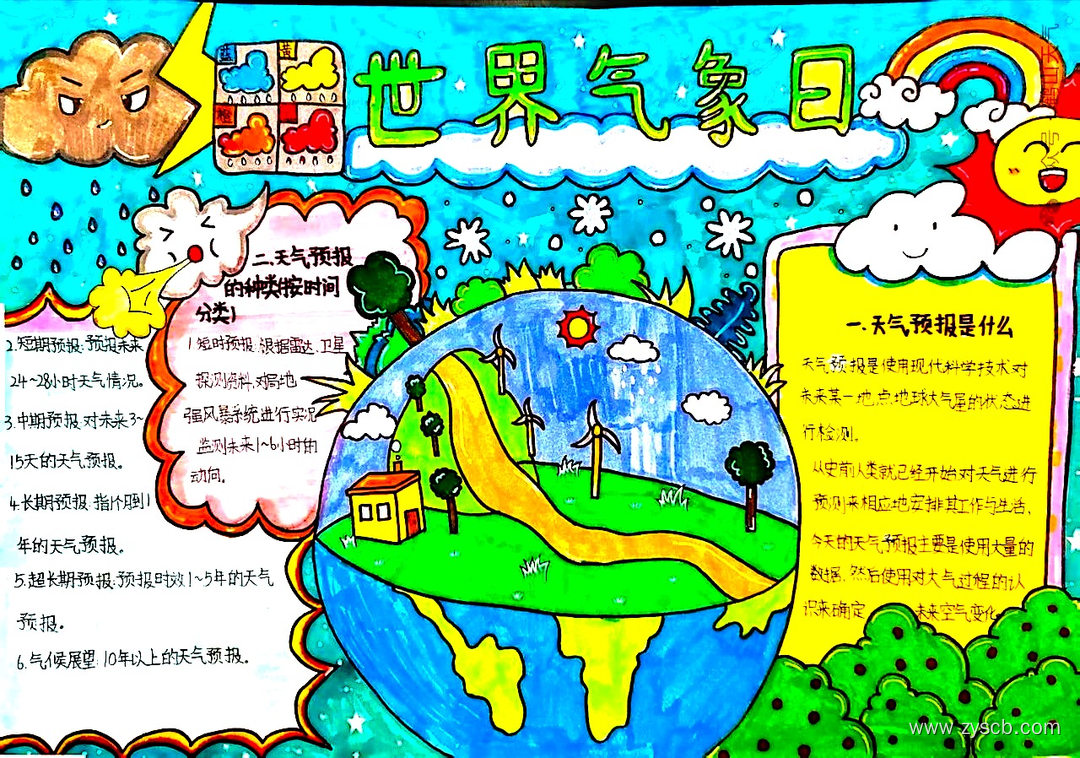 世界气象日
蓝
黄
橙
二.天气预报
的种类(按时间
分类)
1.短时预报:根据雷达.卫星
探测资料.对局地
强风暴系统进行实况
监测未来1~6小时的
动向。
2.短期预报:预报未来
24~28小时天气情况。
3.中期预报:对未来3~
15天的天气预报。
4.长期预报:指1个月到1
年的天气预报。
5.超长期预报:预报时效1~5年的天气
预报。
6.气候展望:10年以上的天气预报。
一.天气预报是什么
天气预报是使用现代科学技术对
未来某一地点地球大气层的状态进
行检测。
从史前人类就已经开始对天气进行
预测来相应地安排其工作与生活.
今天的天气预报主要是使用大量的
数据.然后使用对大气过程的认
识来确定 未来空气变化
www.zyscb.com